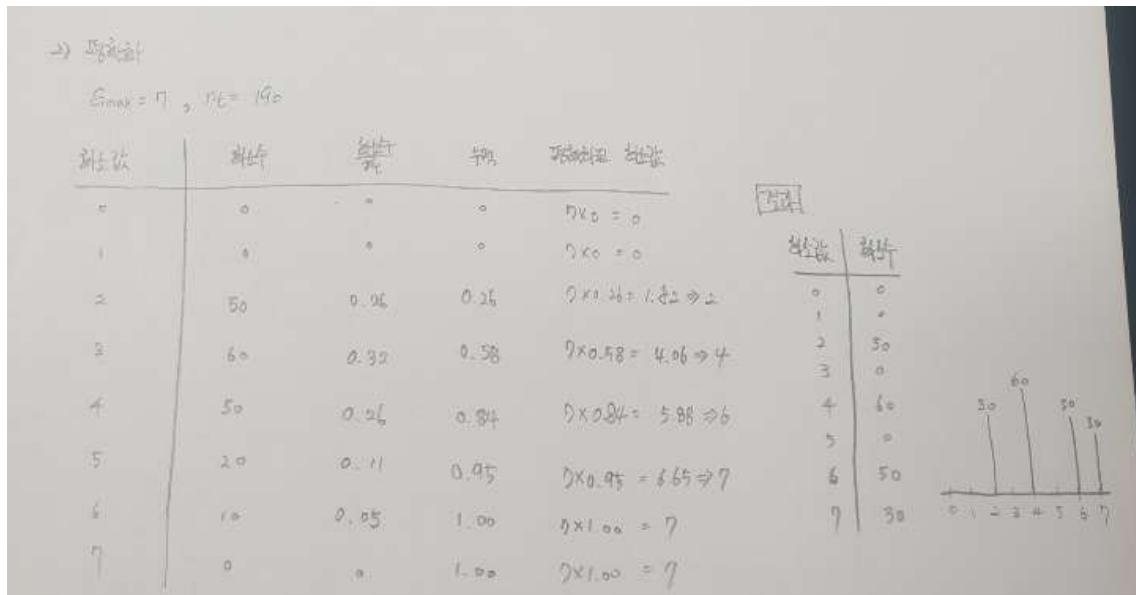 2) 평활화
Gmax = 7, nt = 190
화소값 화소수 화소수/전체 누적 평활화된 화소값
0 0 0 0 7×0 = 0
1 0 0 0 7×0 = 0
2 50 0.26 0.26 7×0.26 = 1.82 ⇒ 2
3 60 0.32 0.58 7×0.58 = 4.06 ⇒ 4
4 50 0.26 0.84 7×0.84 = 5.88 ⇒ 6
5 20 0.11 0.95 7×0.95 = 6.65 ⇒ 7
6 10 0.05 1.00 7×1.00 = 7
7 0 0 1.00 7×1.00 = 7
결과
화소값 화소수
0 0
1 0
2 50
3 0
4 60
5 0
6 50
7 30
50 60 50 30
0 1 2 3 4 5 6 7